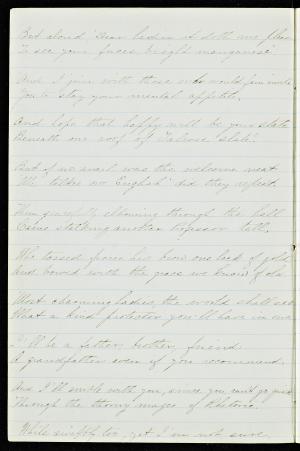 But aloud 'Dear ladies it doth me please
To see your faces bright
And I join with those who would fain invite
You to stay your mental appetite.
And hope that happy will be your state
Beneath our roof of slate.'
But of no avail was the welcome neat
'We no English' did they repeat.
Then gracefully through the hall
Came stalking another professor tall.
He tossed from his brow one lock of gold
And bowed with the grace we know of old.
Most charming ladies, the world shall see
What a kind protector you'll have in me
I'll be a father, brother, friend
A grandfather even if you recommend.
And I'll with you, since you can't go
Through the thorny mazes of Rhetoric.'
While too, yet I'm not sure,